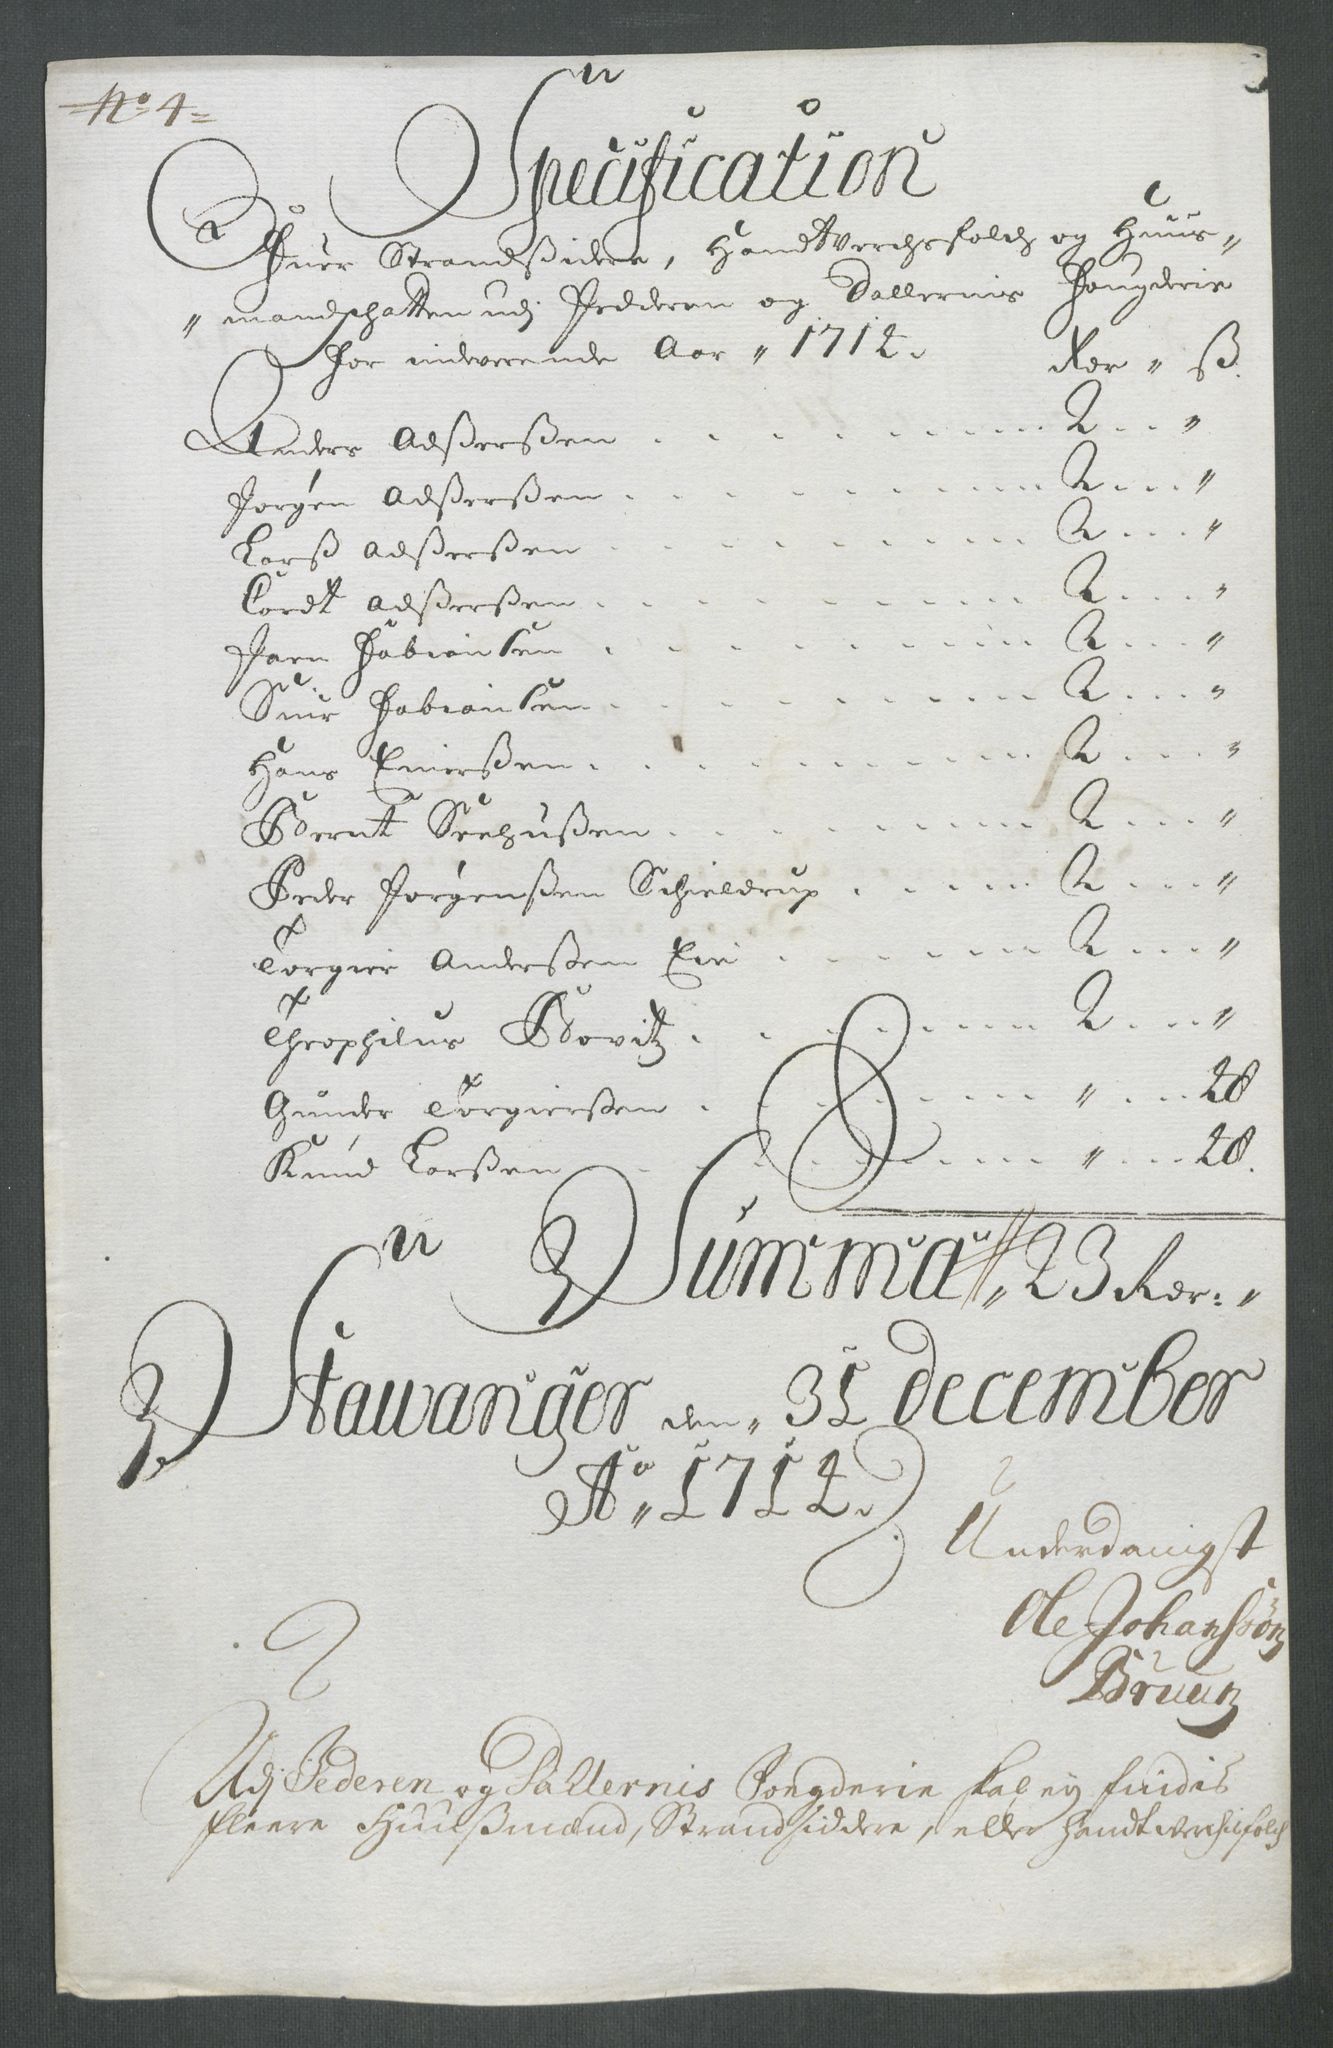 No 4
Specification
Ofuer Strandßidere, Handtverchsfolch og Huus-
mandschatten udj Jedderen og Dallernis fougderie
for indeverende Aar 1712.
Rdr ß.
Anders Adßerßen 2 "
Jørgen Adßerßen 2 "
Larß Adßerßen 2 "
Cordt Adßerßen 2 "
Jaen Fabiansen 2 "
Siur Fabiansen 2 "
Hans Enerßen 2 "
Bernt Seehußen 2 "
Peder Jørgenßen Schieldrup 2 "
Torgier Anderßen Eie 2 "
Theophilus Bovitz 2 "
Gunder Torgierßen " 28
Knud Larßen " 28.
Summa 23 Rdr: "
Stawanger den 31 december
Ao 1712.
Underdanigst
Ole Johansøn
Bruun
Udj Jederen og Dallernis Fougderie skal ej findis
fleere Huußmænd, Strandsiddere, eller handtverchsfolch